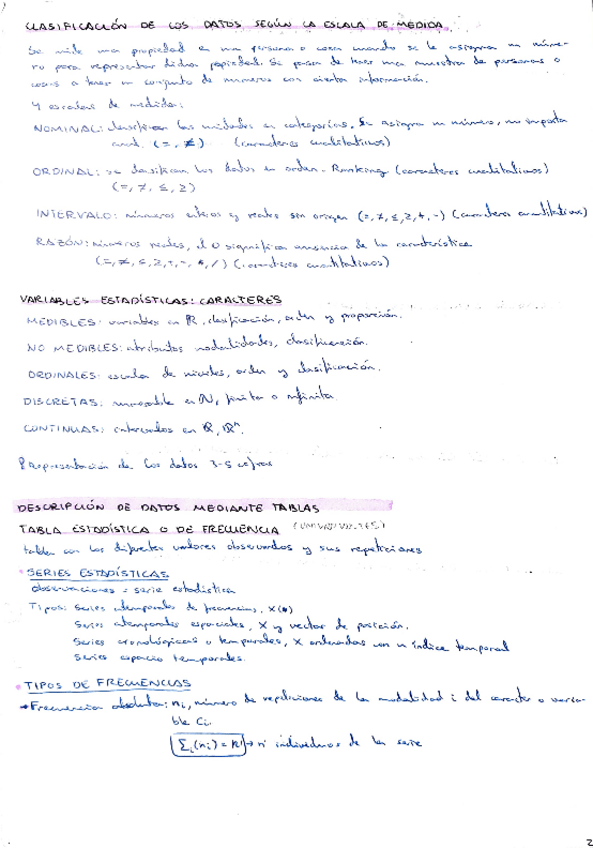 CLASIFICACIÓN DE LOS DATOS SEGÚN LA ESCALA DE MEDIDA
Se mide una propiedad en una persona o cosa cuando se le asigna un núme-
ro para representar dicha propiedad. Se pasa de tener una muestra de personas o
cosas a tener un conjunto de números con cierta información.
4 escalas de medida:
NOMINAL: clasifican las unidades en categorías. Se asigna un número, no importa
cual. (=, ≠) (caracteres cualitativos)
ORDINAL: se clasifican los datos en orden. Ranking (caracteres cualitativos)
(=, ≠, ≤, ≥)
INTERVALO: números enteros y reales sin origen (=, ≠, ≤, ≥, +, -) (caracteres cuantitativos)
RAZÓN: números reales, el 0 significa ausencia de la característica
(=, ≠, ≤, ≥, +, -, *, /) (caracteres cuantitativos)
VARIABLES ESTADÍSTICAS: CARACTERES
MEDIBLES: variables en ℝ, clasificación, orden y proporción.
NO MEDIBLES: atributos modalidades, clasificación.
ORDINALES: escala de niveles, orden y clasificación.
DISCRETAS: numerable en ℕ, finita o infinita.
CONTINUAS: intervalos en ℝ, ℝⁿ.
Representación de los datos 3-5 cifras
DESCRIPCIÓN DE DATOS MEDIANTE TABLAS
TABLA ESTADÍSTICA O DE FRECUENCIA
tabla con los diferentes valores observados y sus repeticiones
• SERIES ESTADÍSTICAS
observaciones = serie estadística
Tipos: Series atemporales de frecuencias, X
Series atemporales espaciales, X y vector de posición.
Series cronológicas o temporales, X ordenadas con un índice temporal
Series espacio temporales.
• TIPOS DE FRECUENCIAS
→ Frecuencia absoluta: ni, número de repeticiones de la modalidad i del caracter o varia-
ble Ci.
Σi(ni) = N → nº individuos de la serie
2